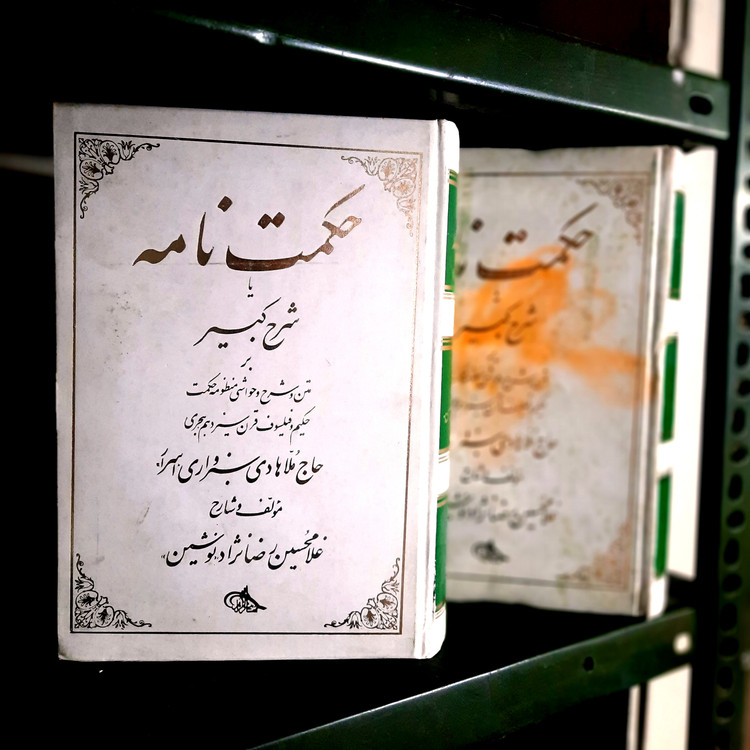 حکمت نامه
یا
شرح کبیر
بر
متن و شرح و حواشی منظومه حکمت
حکیم و فیلسوف قرن سیزدهم هجری
حاج ملّا هادی سبزواری «اسرار»
مؤلف و شارح
غلامحسین رضانژاد «نوشین»
حکمت
یا
شرح کبیر